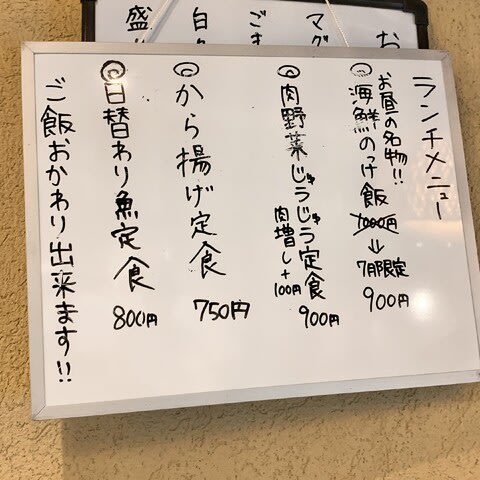 ランチメニュー
お昼の名物!!
◎海鮮のっけ飯
1000円
↓
7月限定
900円
◎肉野菜じゅうじゅう定食
肉増し+100円
900円
◎から揚げ定食
750円
◎日替わり魚定食
800円
ご飯おかわり出来ます!!
お
マグ
ごま
盛り